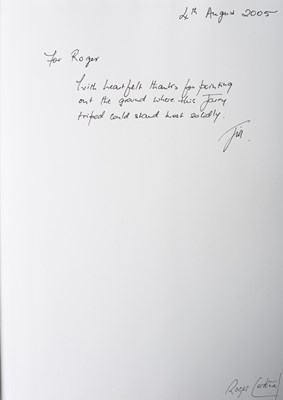 4th August 2005
For Roger
With heartfelt thanks for pointing
out the ground where this
tripod could stand most solidly.
Jill.
Roger Cardinal